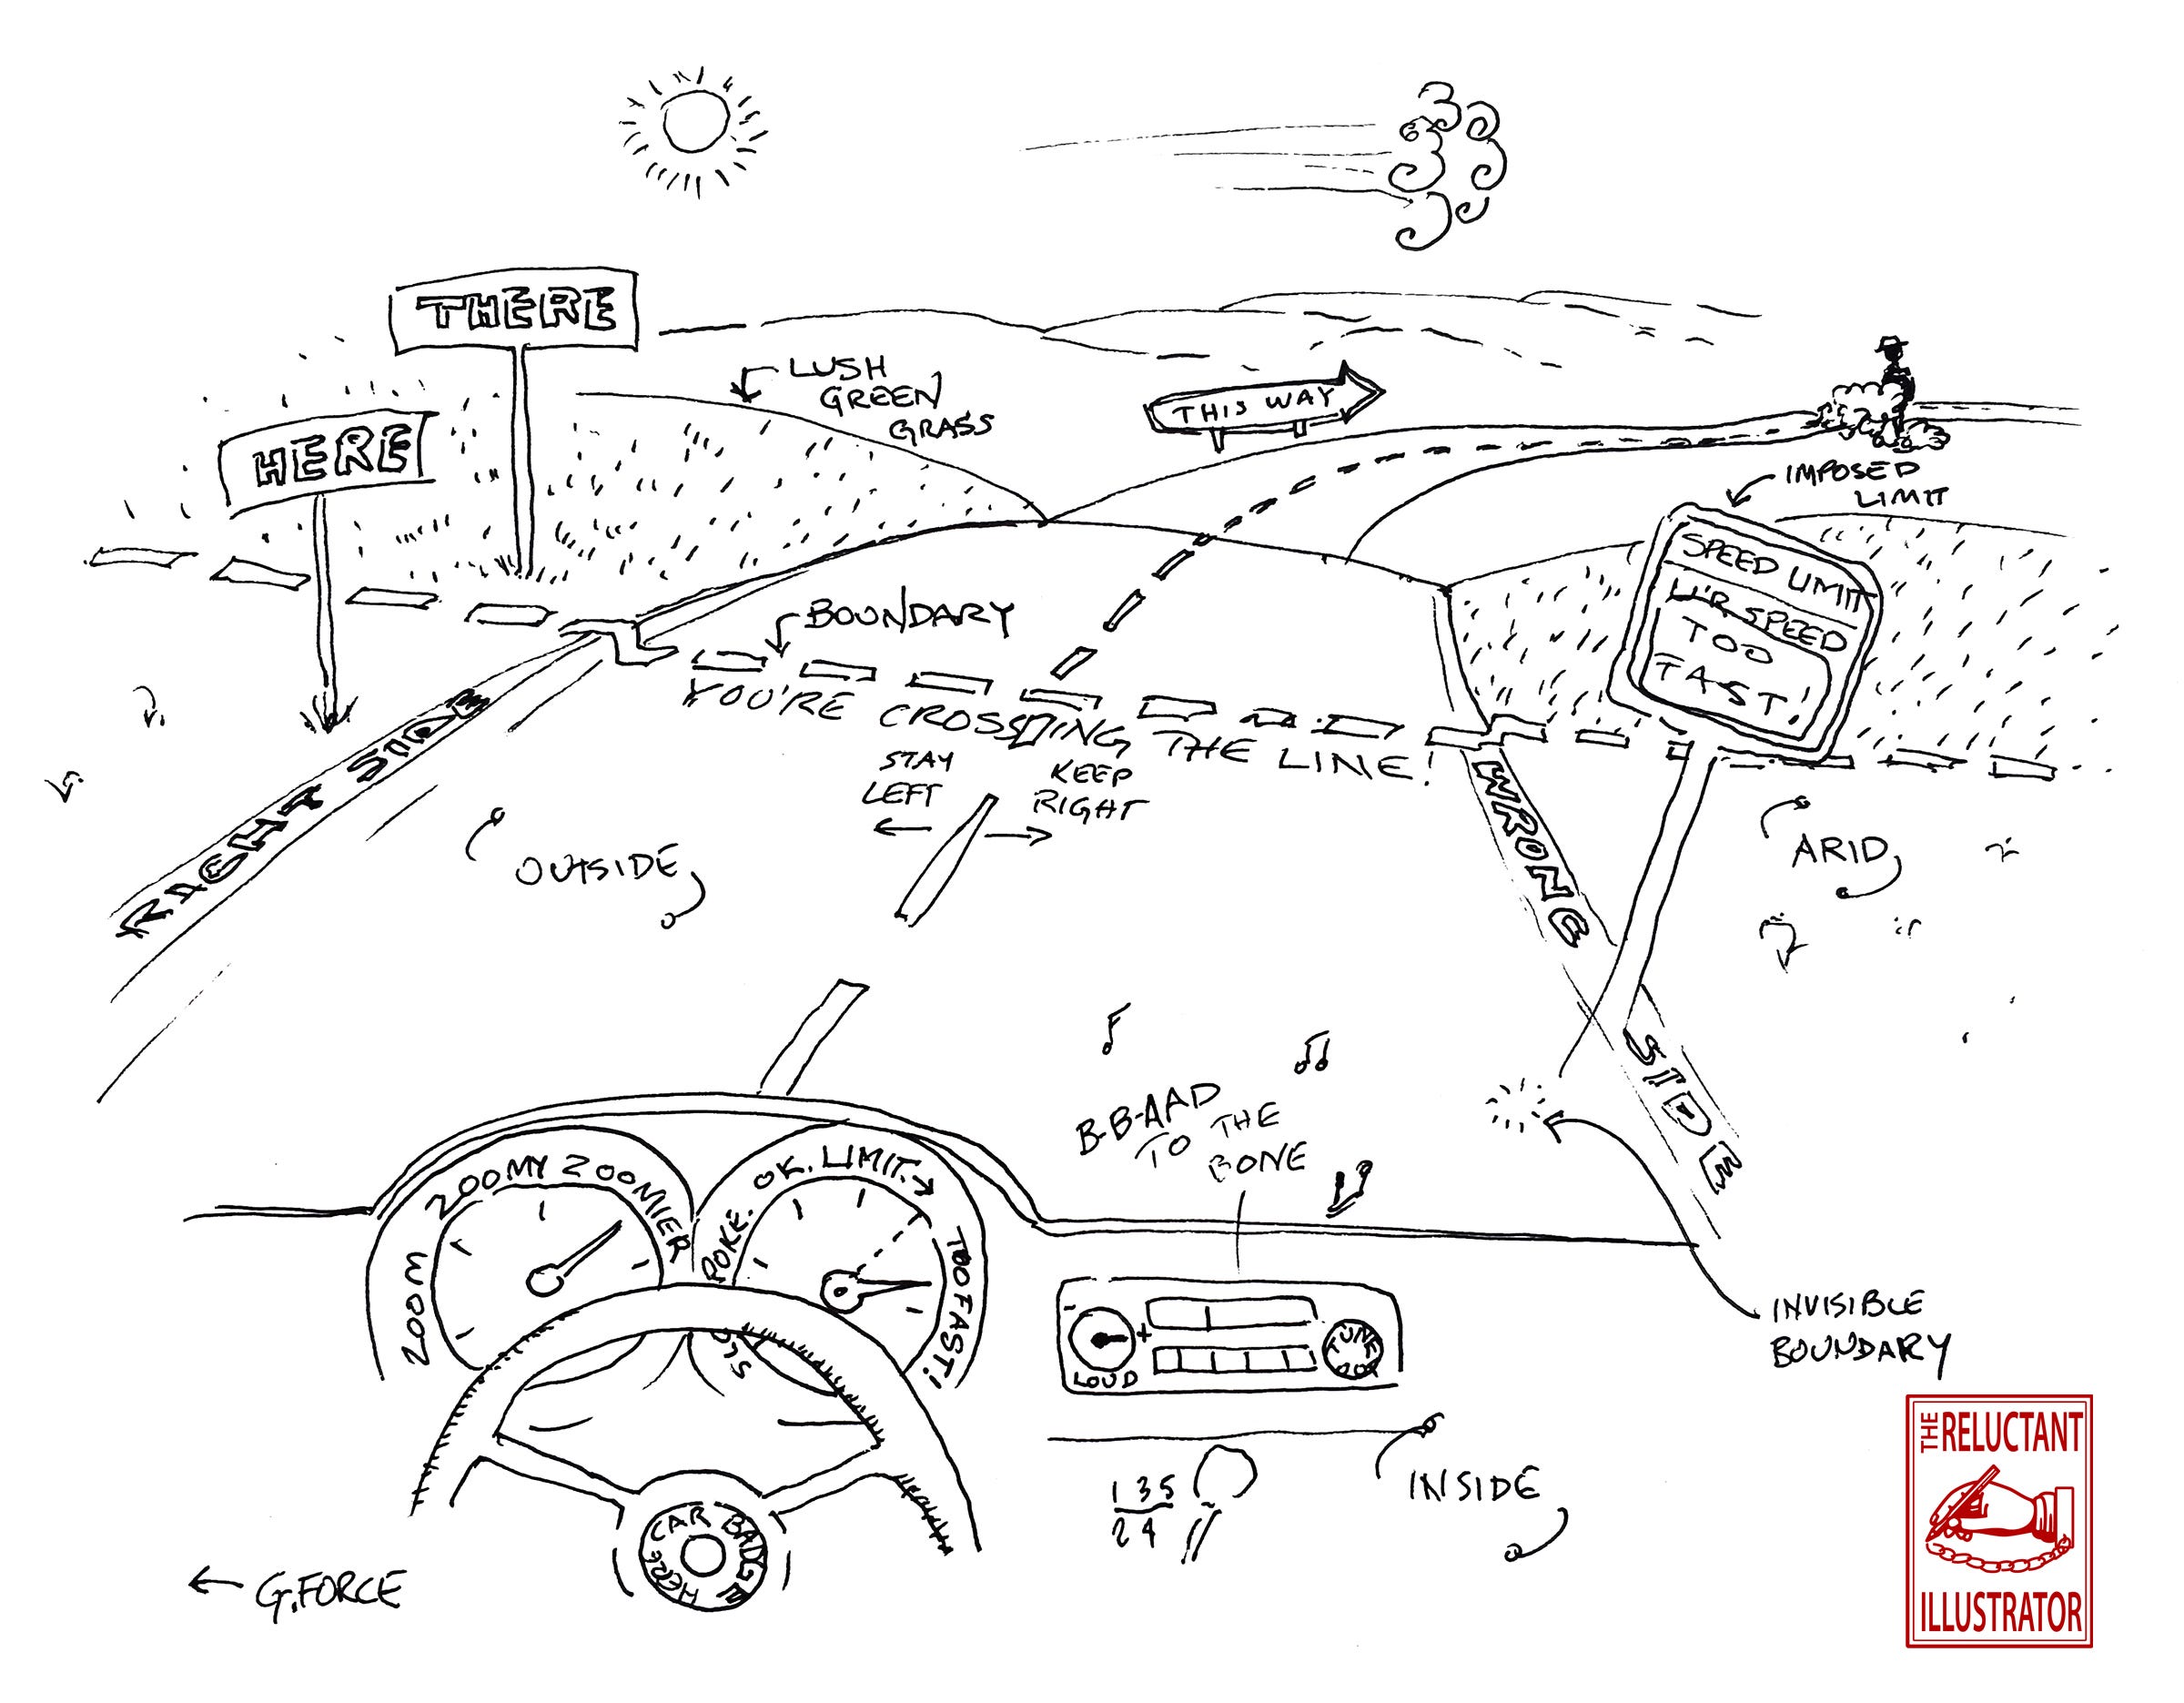 THERE
HERE
LUSH
GREEN
GRASS
THIS WAY
IMPOSED
LIMIT
SPEED LIMIT
U'R SPEED
TOO
FAST!
BOUNDARY
YOU'RE CROSSING THE LINE!
STAY
LEFT
KEEP
RIGHT
RIGHT SIDE
WRONG SIDE
OUTSIDE
ARID
B-B-AAD
TO THE
BONE
ZOOM ZOOMY ZOOMIER
POKE. OK. LIMIT. TOO FAST!
LOUD
TUNE
INVISIBLE
BOUNDARY
INSIDE
1 3 5
2 4
CAR BADGE HERE
G.FORCE
THE RELUCTANT
ILLUSTRATOR